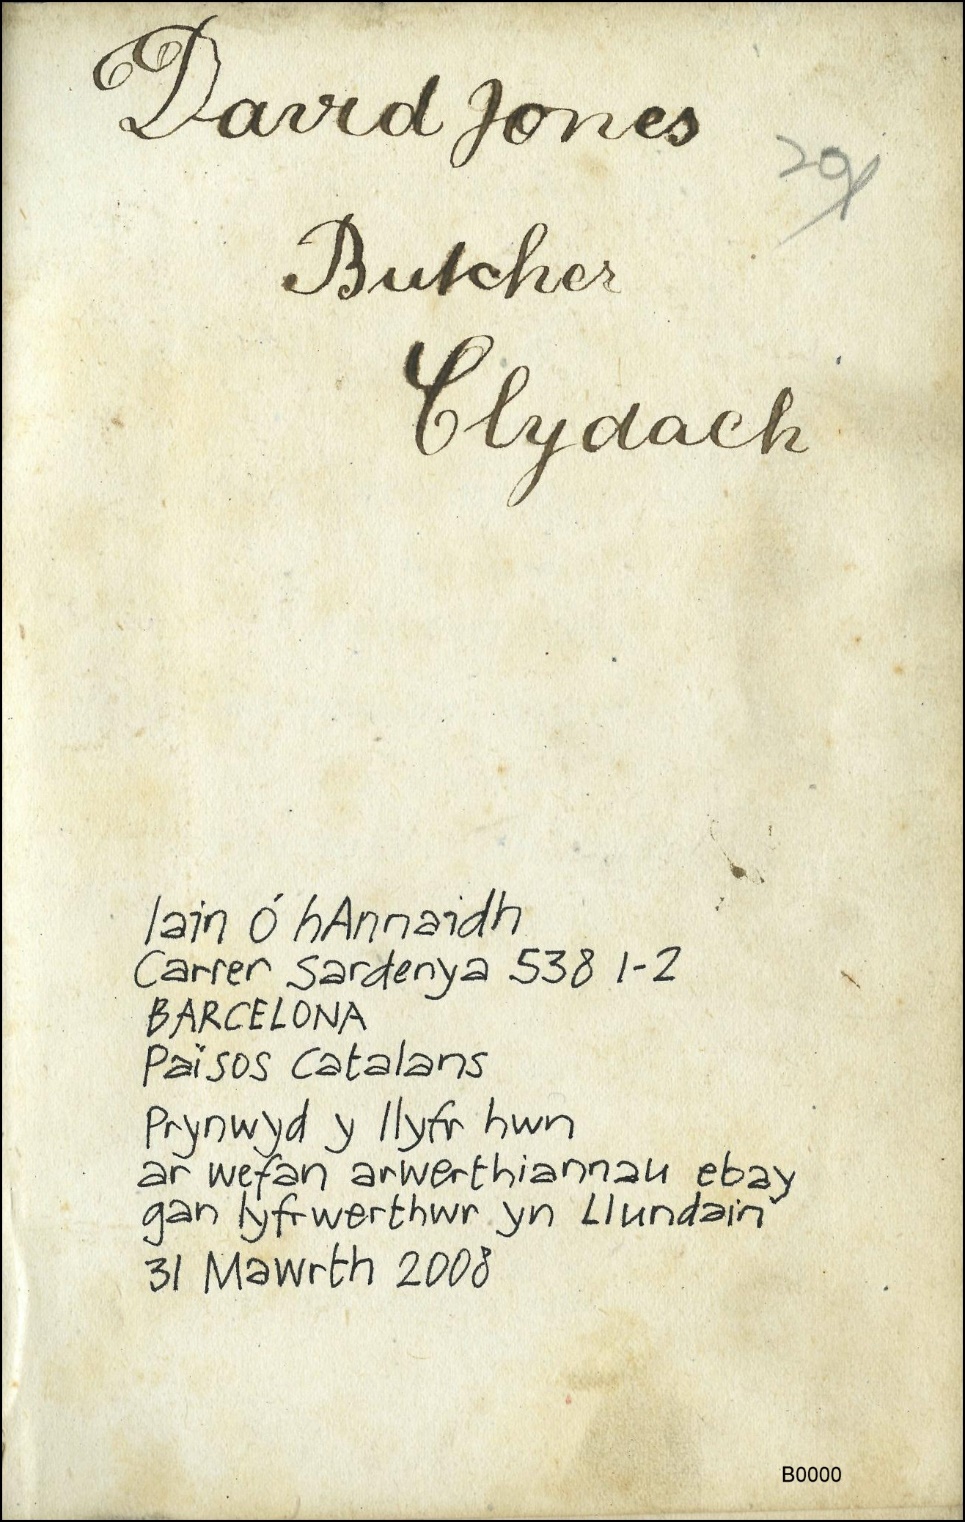 David Jones
Butcher
Clydach
Iain Ó hAnnaidh
Carrer Sardenya 538 1-2
BARCELONA
Països Catalans
Prynwyd y llyfr hwn
ar wefan arwerthiannau ebay
gan lyfrwerthwr yn Llundain
31 Mawrth 2008
B0000